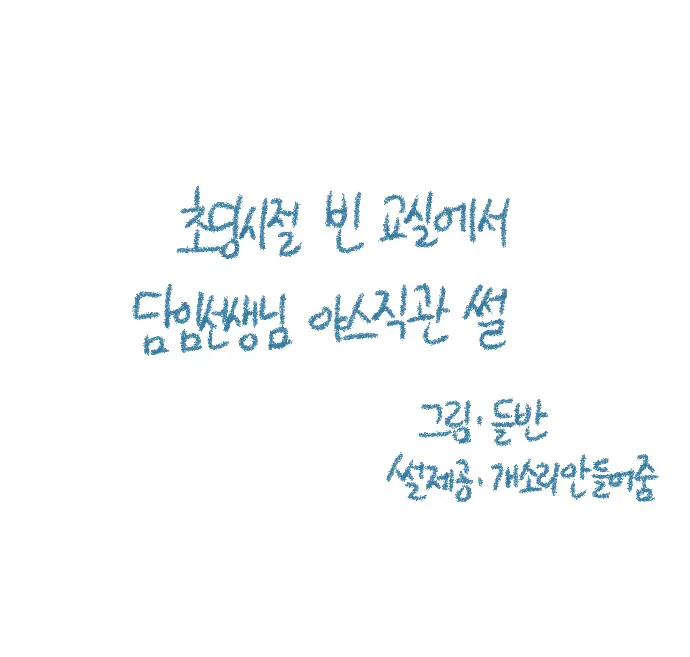 초딩시절 빈 교실에서
담임선생님 야스직관 썰
그림·들반
썰제공·개소리안들어줌